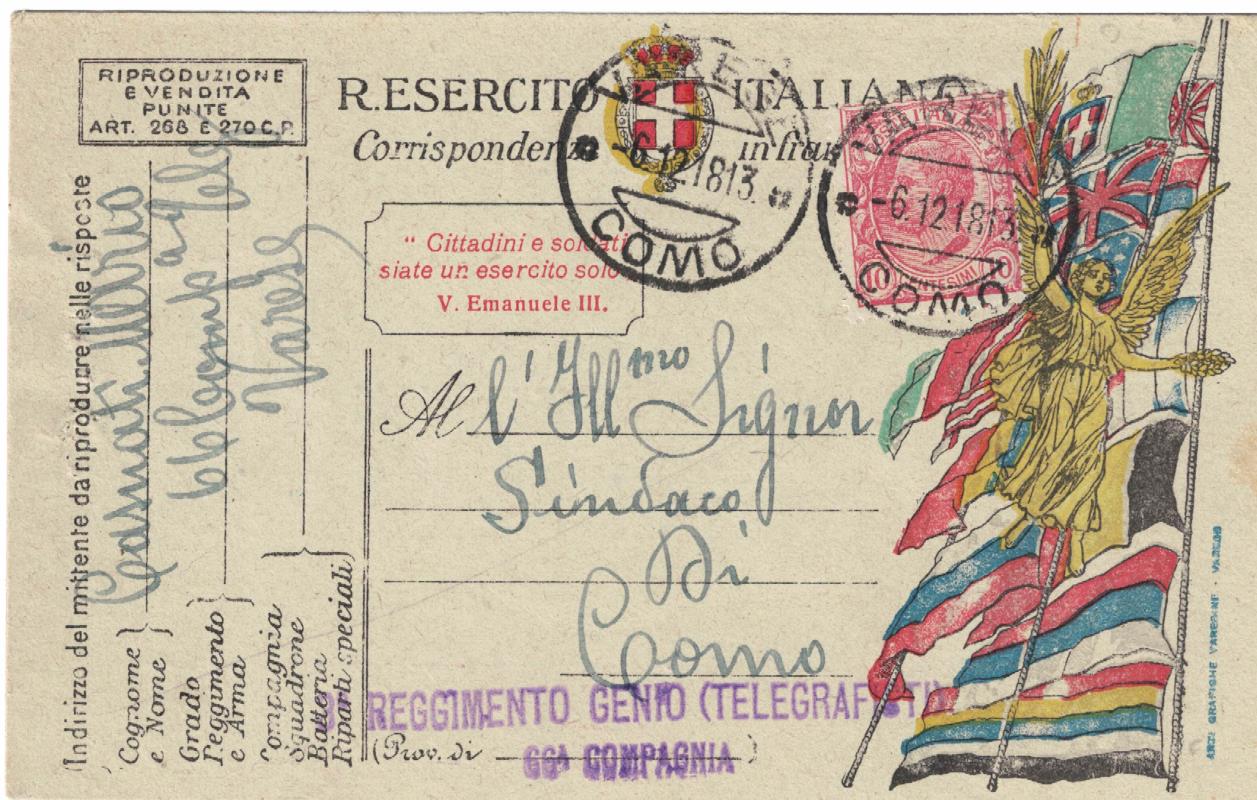 RIPRODUZIONE
E VENDITA
PUNITE
ART. 268 E 270 C.P.
R. ESERCITO ITALIANO
Corrispondenza in fran
VARESE
-6.12.18 13.
COMO
VARESE
-6.12.18 13.
COMO
10 CENTESIMI 10
" Cittadini e soldati
siate un esercito solo
V. Emanuele III.
Al l'Illmo Signor
Sindaco
Di
Como
(Prov. di )
REGGIMENTO GENIO (TELEGRAFISTI)
66A COMPAGNIA
(Indirizzo del mittente da riprodurre nelle risposte
Cognome
e Nome
Grado
Reggimento
e Arma
Varese
Compagnia
Squadrone
Batteria
Riparti speciali)
ARTI GRAFICHE VARESINE - VARESE